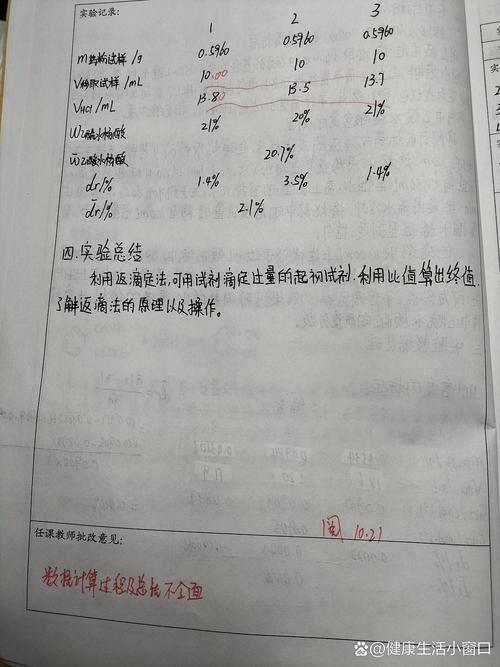 实验记录:
1 2 3
m热构试样/g 0.5960 0.5960 0.5960
V移取试样/mL 10.00 10 10
VHCl/mL 13.80 13.5 13.7
W乙酰水杨酸 21% 20% 21%
W̄乙酰水杨酸 20.7%
dr/% 1.4% 3.5% 1.4%
d̄r/% 2.1%
四.实验总结
利用返滴定法,可用试剂滴定过量的起初试剂.利用比值算出终值.
了解返滴法的原理以及操作。
阅 10.21
任课教师批改意见:
数据计算过程及总结不全面
@健康生活小窗口